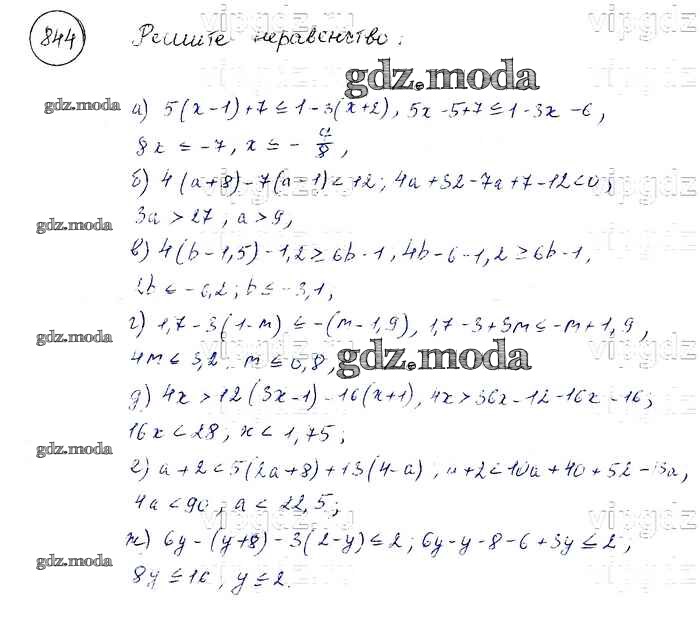 844 Решите неравенство:
а) 5(x-1)+7 ≤ 1-3(x+2), 5x-5+7 ≤ 1-3x-6,
8x ≤ -7, x ≤ -7/8,
б) 4(a+8)-7(a-1)<12; 4a+32-7a+7-12<0;
3a > 27, a > 9,
в) 4(b-1,5)-1,2 ≥ 6b-1, 4b-6-1,2 ≥ 6b-1,
2b ≤ -6,2; b ≤ -3,1,
г) 1,7-3(1-m) ≤ -(m-1,9), 1,7-3+3m ≤ -m+1,9,
4m ≤ 3,2, m ≤ 0,8,
д) 4x > 12(3x-1)-16(x+1), 4x > 36x-12-16x-16;
16x < 28; x < 1,75;
г) a+2 < 5(2a+8)+13(4-a), a+2 < 10a+40+52-13a,
4a < 90; a < 22,5;
ж) 6y-(y+8)-3(2-y) ≤ 2; 6y-y-8-6+3y ≤ 2;
8y ≤ 16, y ≤ 2.
gdz.moda
gdz.moda
gdz.moda
gdz.moda
gdz.moda
gdz.moda
gdz.moda
vipgdz
vipgdz.ru
vipgdz